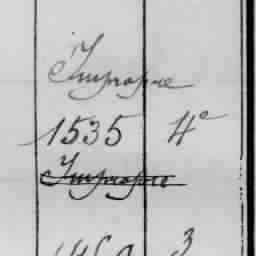 Impropre
1535 4e
Impropre
3